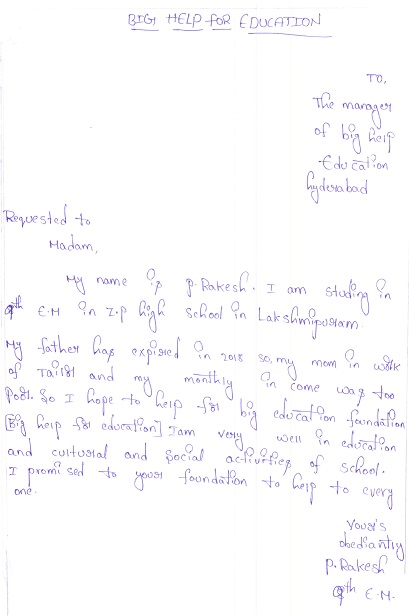 BIG HELP FOR EDUCATION
TO,
The manager
of big help
Education
hyderabad
Requested to
Madam,
My name is p. Rakesh. I am studing in
9th E.M in Z.P high school in Lakshmipuram.
My father has expired in 2018 so, my mom in work
of Tailor and my monthly in come was too
Poor. So I hope to help for big education foundation
[Big help for education] I am very well in education
and cultural and social activities of school.
I promised to your foundation to help to every
one.
Your's
obediantly
P. Rakesh
9th E.M.